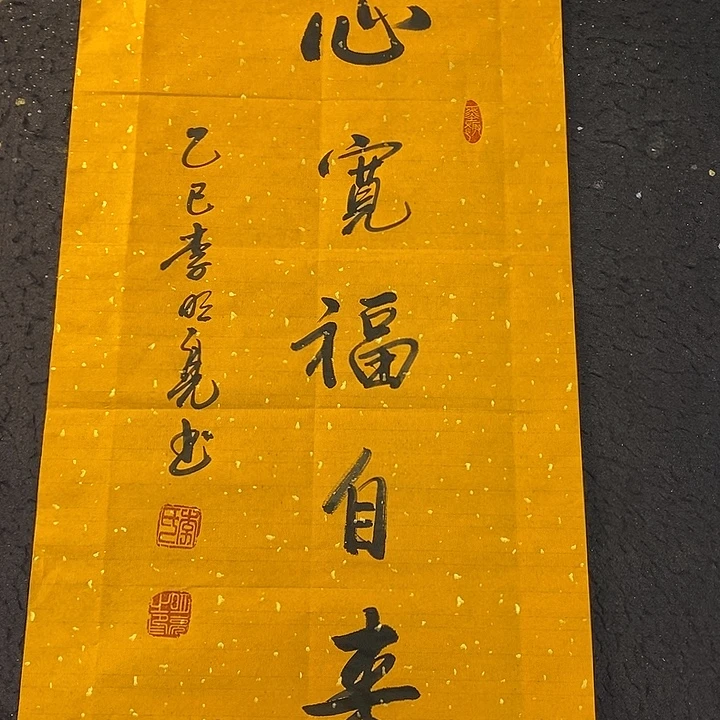 心寬福自来
乙巳李明亮书